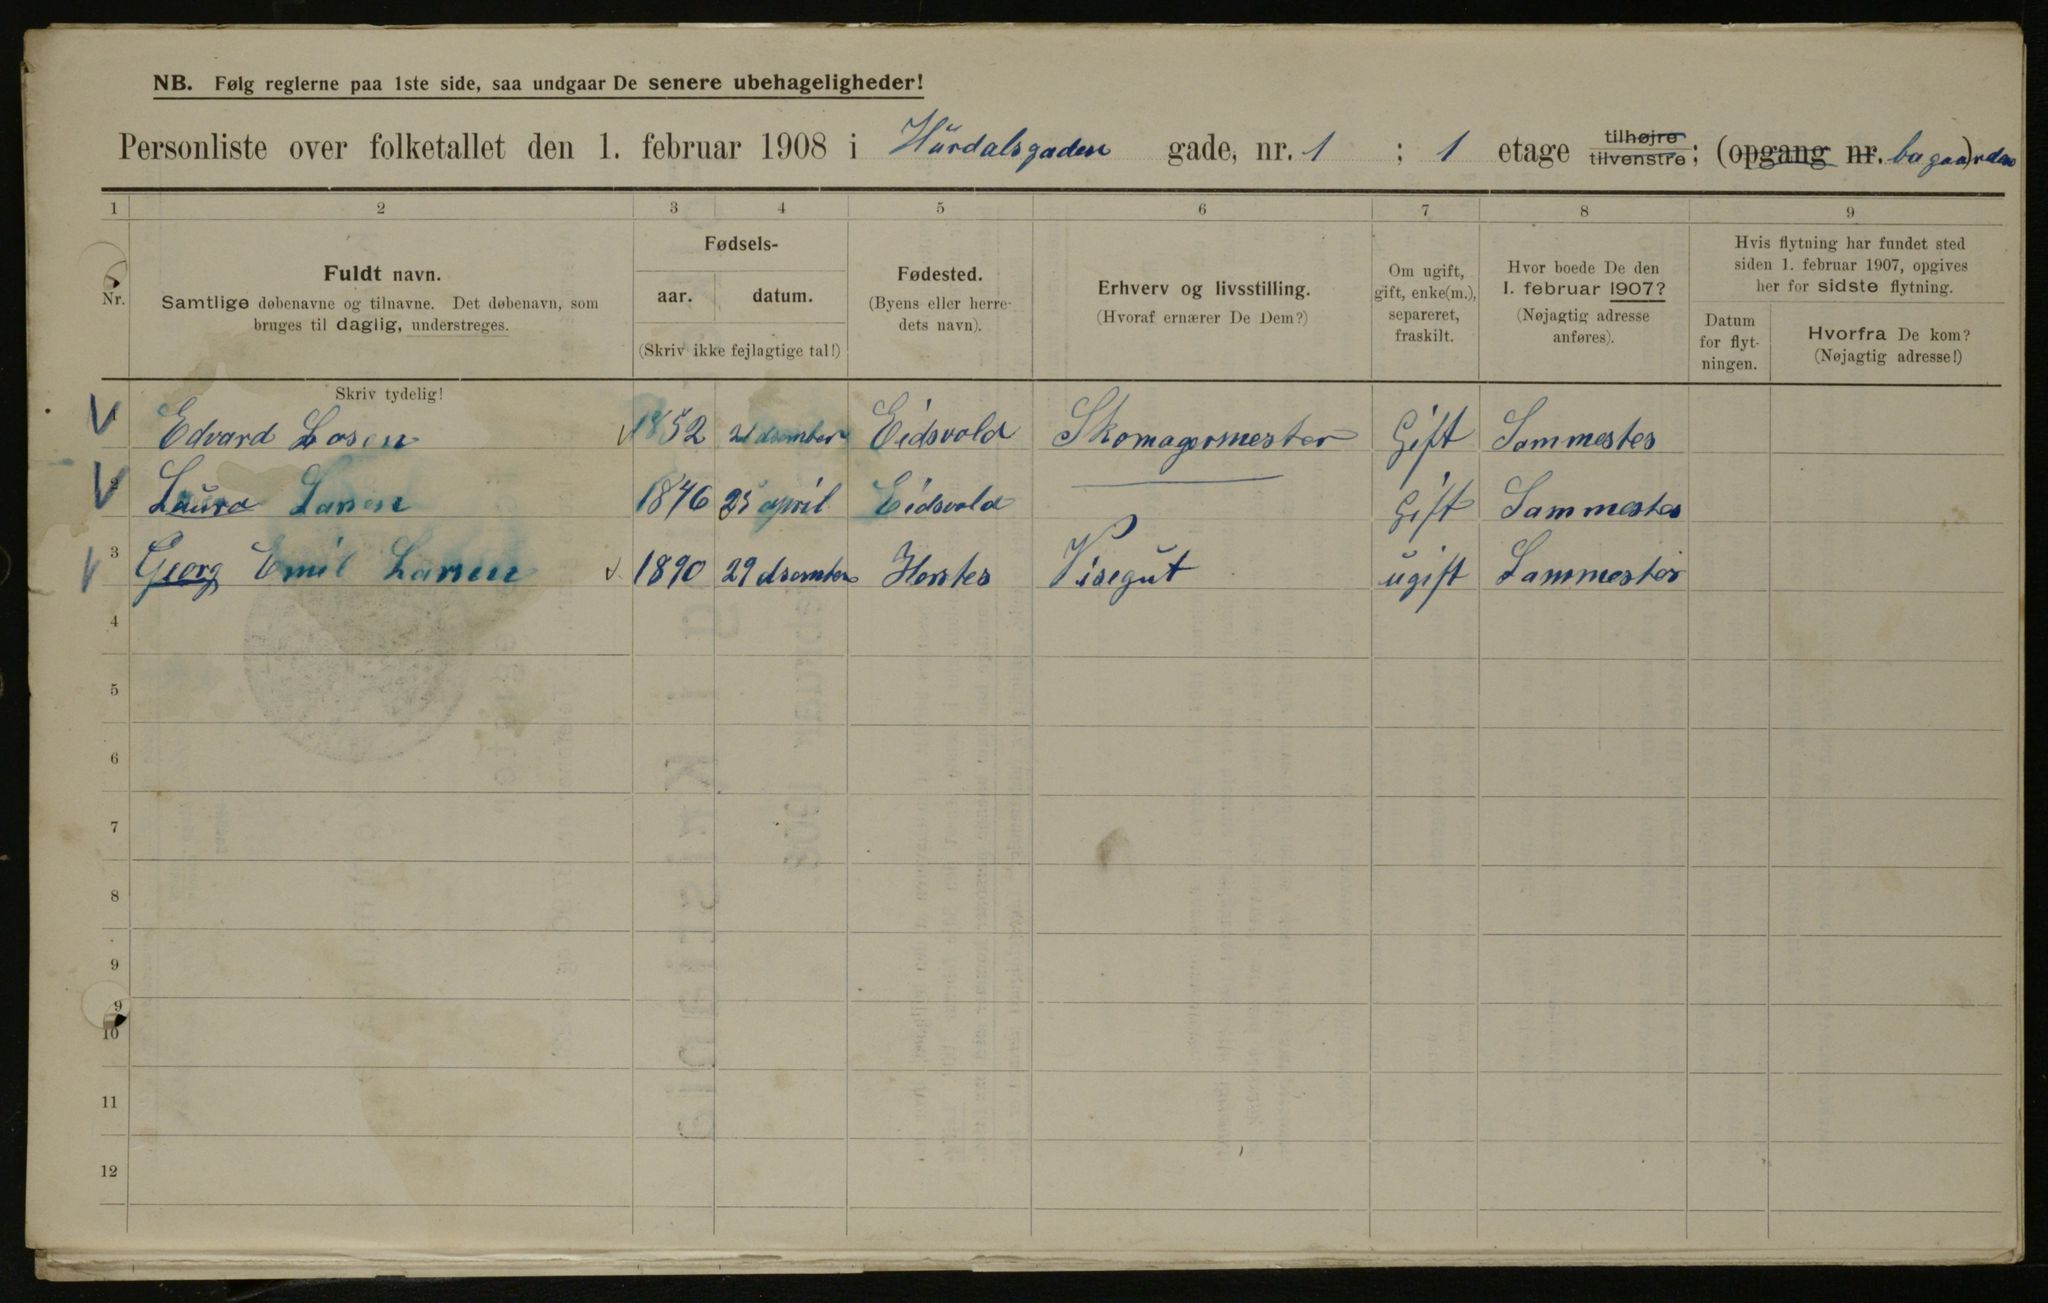 NB. Følg reglerne paa 1ste side, saa undgaar De senere ubehageligheder!
Personliste over folketallet den 1. februar 1908 i Hürdalsgaden gade, nr. 1 ; 1 etage tilhøjre tilvenstre; (opgang nr. bagaarden)
1 2 3 4 5 6 7 8 9
Nr.
Fuldt navn.
Samtlige døbenavne og tilnavne. Det døbenavn, som
bruges til daglig, understreges.
Skriv tydelig!
Fødsels-
aar. datum.
(Skriv ikke fejlagtige tal!)
Fødested.
(Byens eller herre-
dets navn).
Erhverv og livsstilling.
(Hvoraf ernærer De Dem?)
Om ugift,
gift, enke(m.),
separeret,
fraskilt.
Hvor boede De den
1. februar 1907?
(Nøjagtig adresse
anføres).
Hvis flytning har fundet sted
siden 1. februar 1907, opgives
her for sidste flytning.
Datum
for flyt-
ningen.
Hvorfra De kom?
(Nøjagtig adresse!)
1 Edvard Losen 1852 21 dsember Eidsvold Skomagermester Gift Sammestes
2 Laura Larsen 1846 25 april Eidsvold Gift Sammestes
3 Georg Emil Larsen 1890 29 dsember Herstes Visegut ugift Sammestes
4
5
6
7
8
9
9
10
11
12